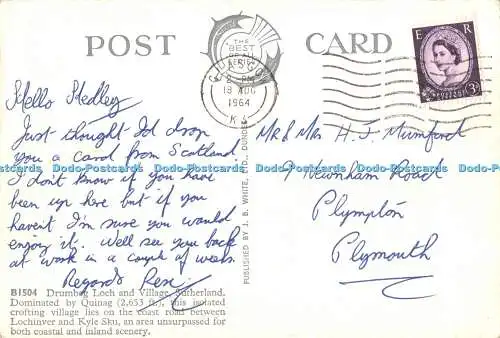 POST CARD
THE
BEST
OF ALL
SERIES
GLASGOW
2 - PM
18 AUG
1964
K
E R
POSTAGE REVENUE
3D
Hello Hedley
Just thought I'd drop
you a card from Scotland
I don't know if you have
been up here but if you
haven't I'm sure you would
enjoy it. We'll see you back
at work in a couple of weeks
Regards Rex.
Mr & Mrs H. J. Mumford
9 Road
Plympton
Plymouth
PUBLISHED BY J. B. WHITE, LTD., DUNDEE
B1504 Drumbeg Loch and Village, Sutherland.
Dominated by Quinag (2,653 ft.), this isolated
crofting village lies on the coast road between
Lochinver and Kyle Sku, an area unsurpassed for
both coastal and inland scenery.
DS-Postcards DS-Postcards DS-Postcards DS-Postcards DS-Postcards